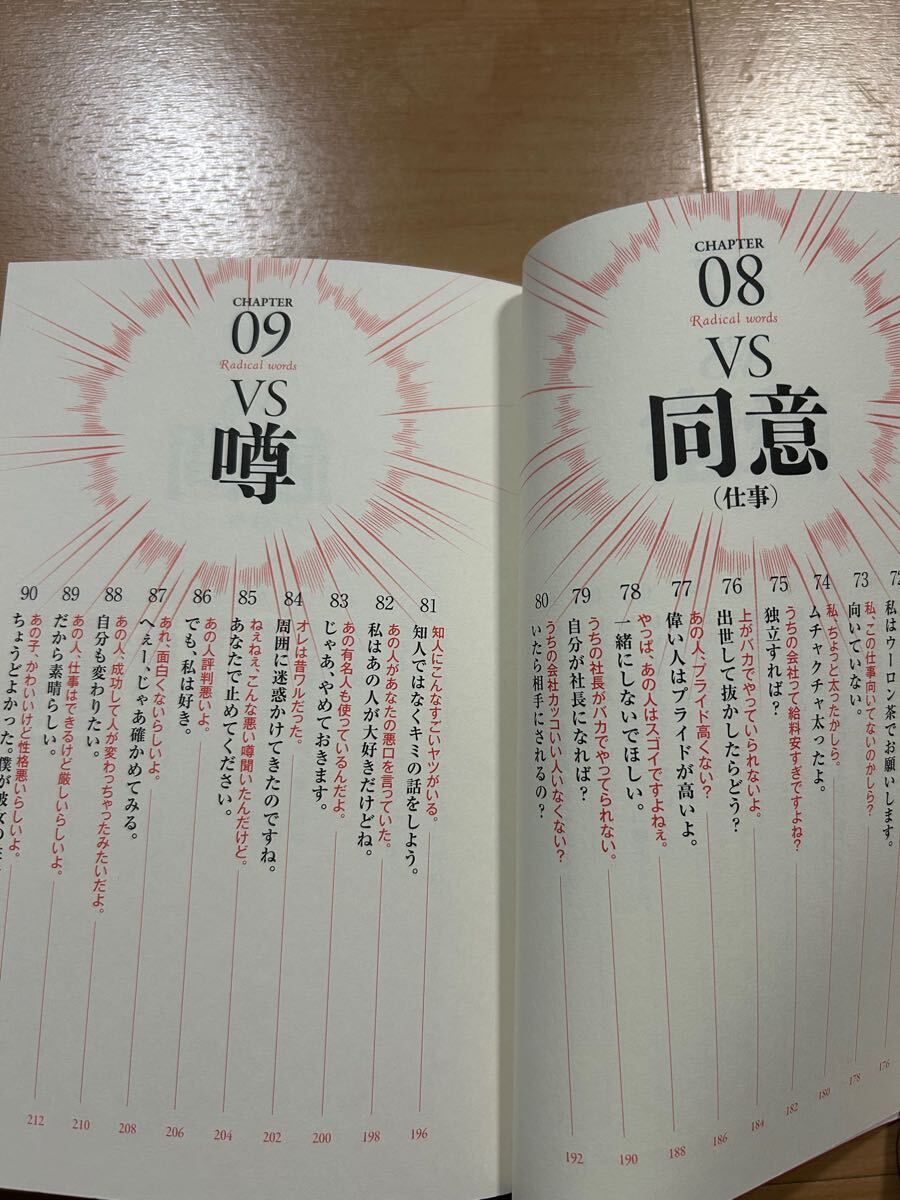 CHAPTER
08
Radical words
VS
同意
(仕事)
72
私はウーロン茶でお願いします。
176
73
私、この仕事向いてないのかしら?
向いていない。
178
74
私、ちょっと太ったかしら。
ムチャクチャ太ったよ。
180
75
うちの会社って給料安すぎですよね?
独立すれば?
182
76
上がバカでやっていられないよ。
出世して抜かしたらどう?
184
77
あの人、プライド高くない?
偉い人はプライドが高いよ。
186
78
やっぱ、あの人はスゴイですよねぇ。
一緒にしないでほしい。
188
79
うちの社長がバカでやってられない。
自分が社長になれば?
190
80
うちの会社カッコいい人いなくない?
いたら相手にされるの?
192
CHAPTER
09
Radical words
VS
噂
81
知人にこんなすごいヤツがいる。
知人ではなくキミの話をしよう。
196
82
あの人があなたの悪口を言っていた。
私はあの人が大好きだけどね。
198
83
あの有名人も使っているんだよ。
じゃあ、やめておきます。
200
84
オレは昔ワルだった。
周囲に迷惑かけてきたのですね。
202
85
ねぇねぇ、こんな悪い噂聞いたんだけど。
あなたで止めてください。
204
86
あの人評判悪いよ。
でも、私は好き。
206
87
あれ、面白くないらしいよ。
へぇー、じゃあ確かめてみる。
208
88
あの人、成功して人が変わっちゃったみたいだよ。
自分も変わりたい。
210
89
あの人、仕事はできるけど厳しいらしいよ。
だから素晴らしい。
212
90
あの子、かわいいけど性格悪いらしいよ。
ちょうどよかった。僕が彼女の